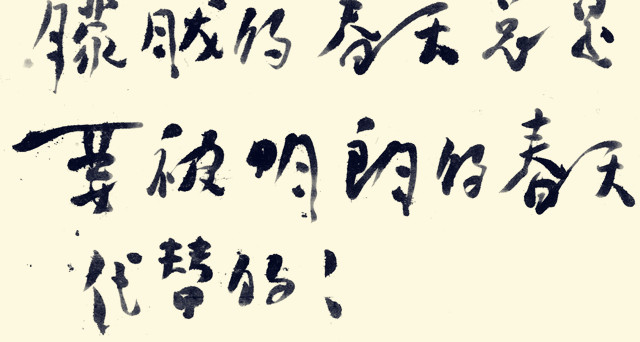 朦胧的春天总是
要被明朗的春天
代替的；